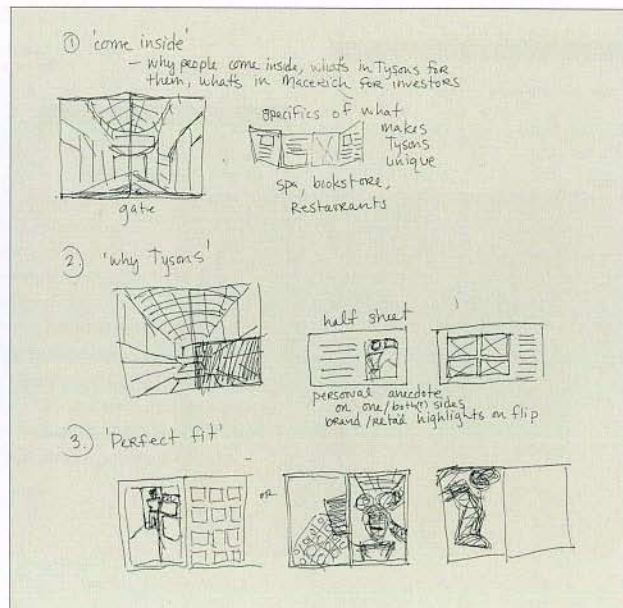 ① 'come inside'
— why people come inside, what's in Tysons for
them, what's in Macerich for investors
specifics of what
makes
Tysons
unique
gate
spa, bookstore,
Restaurants
2. 'why Tysons'
half sheet
personal anecdote
on one/both(?) sides
brand/retail highlights on flip
3. 'Perfect fit'
OR